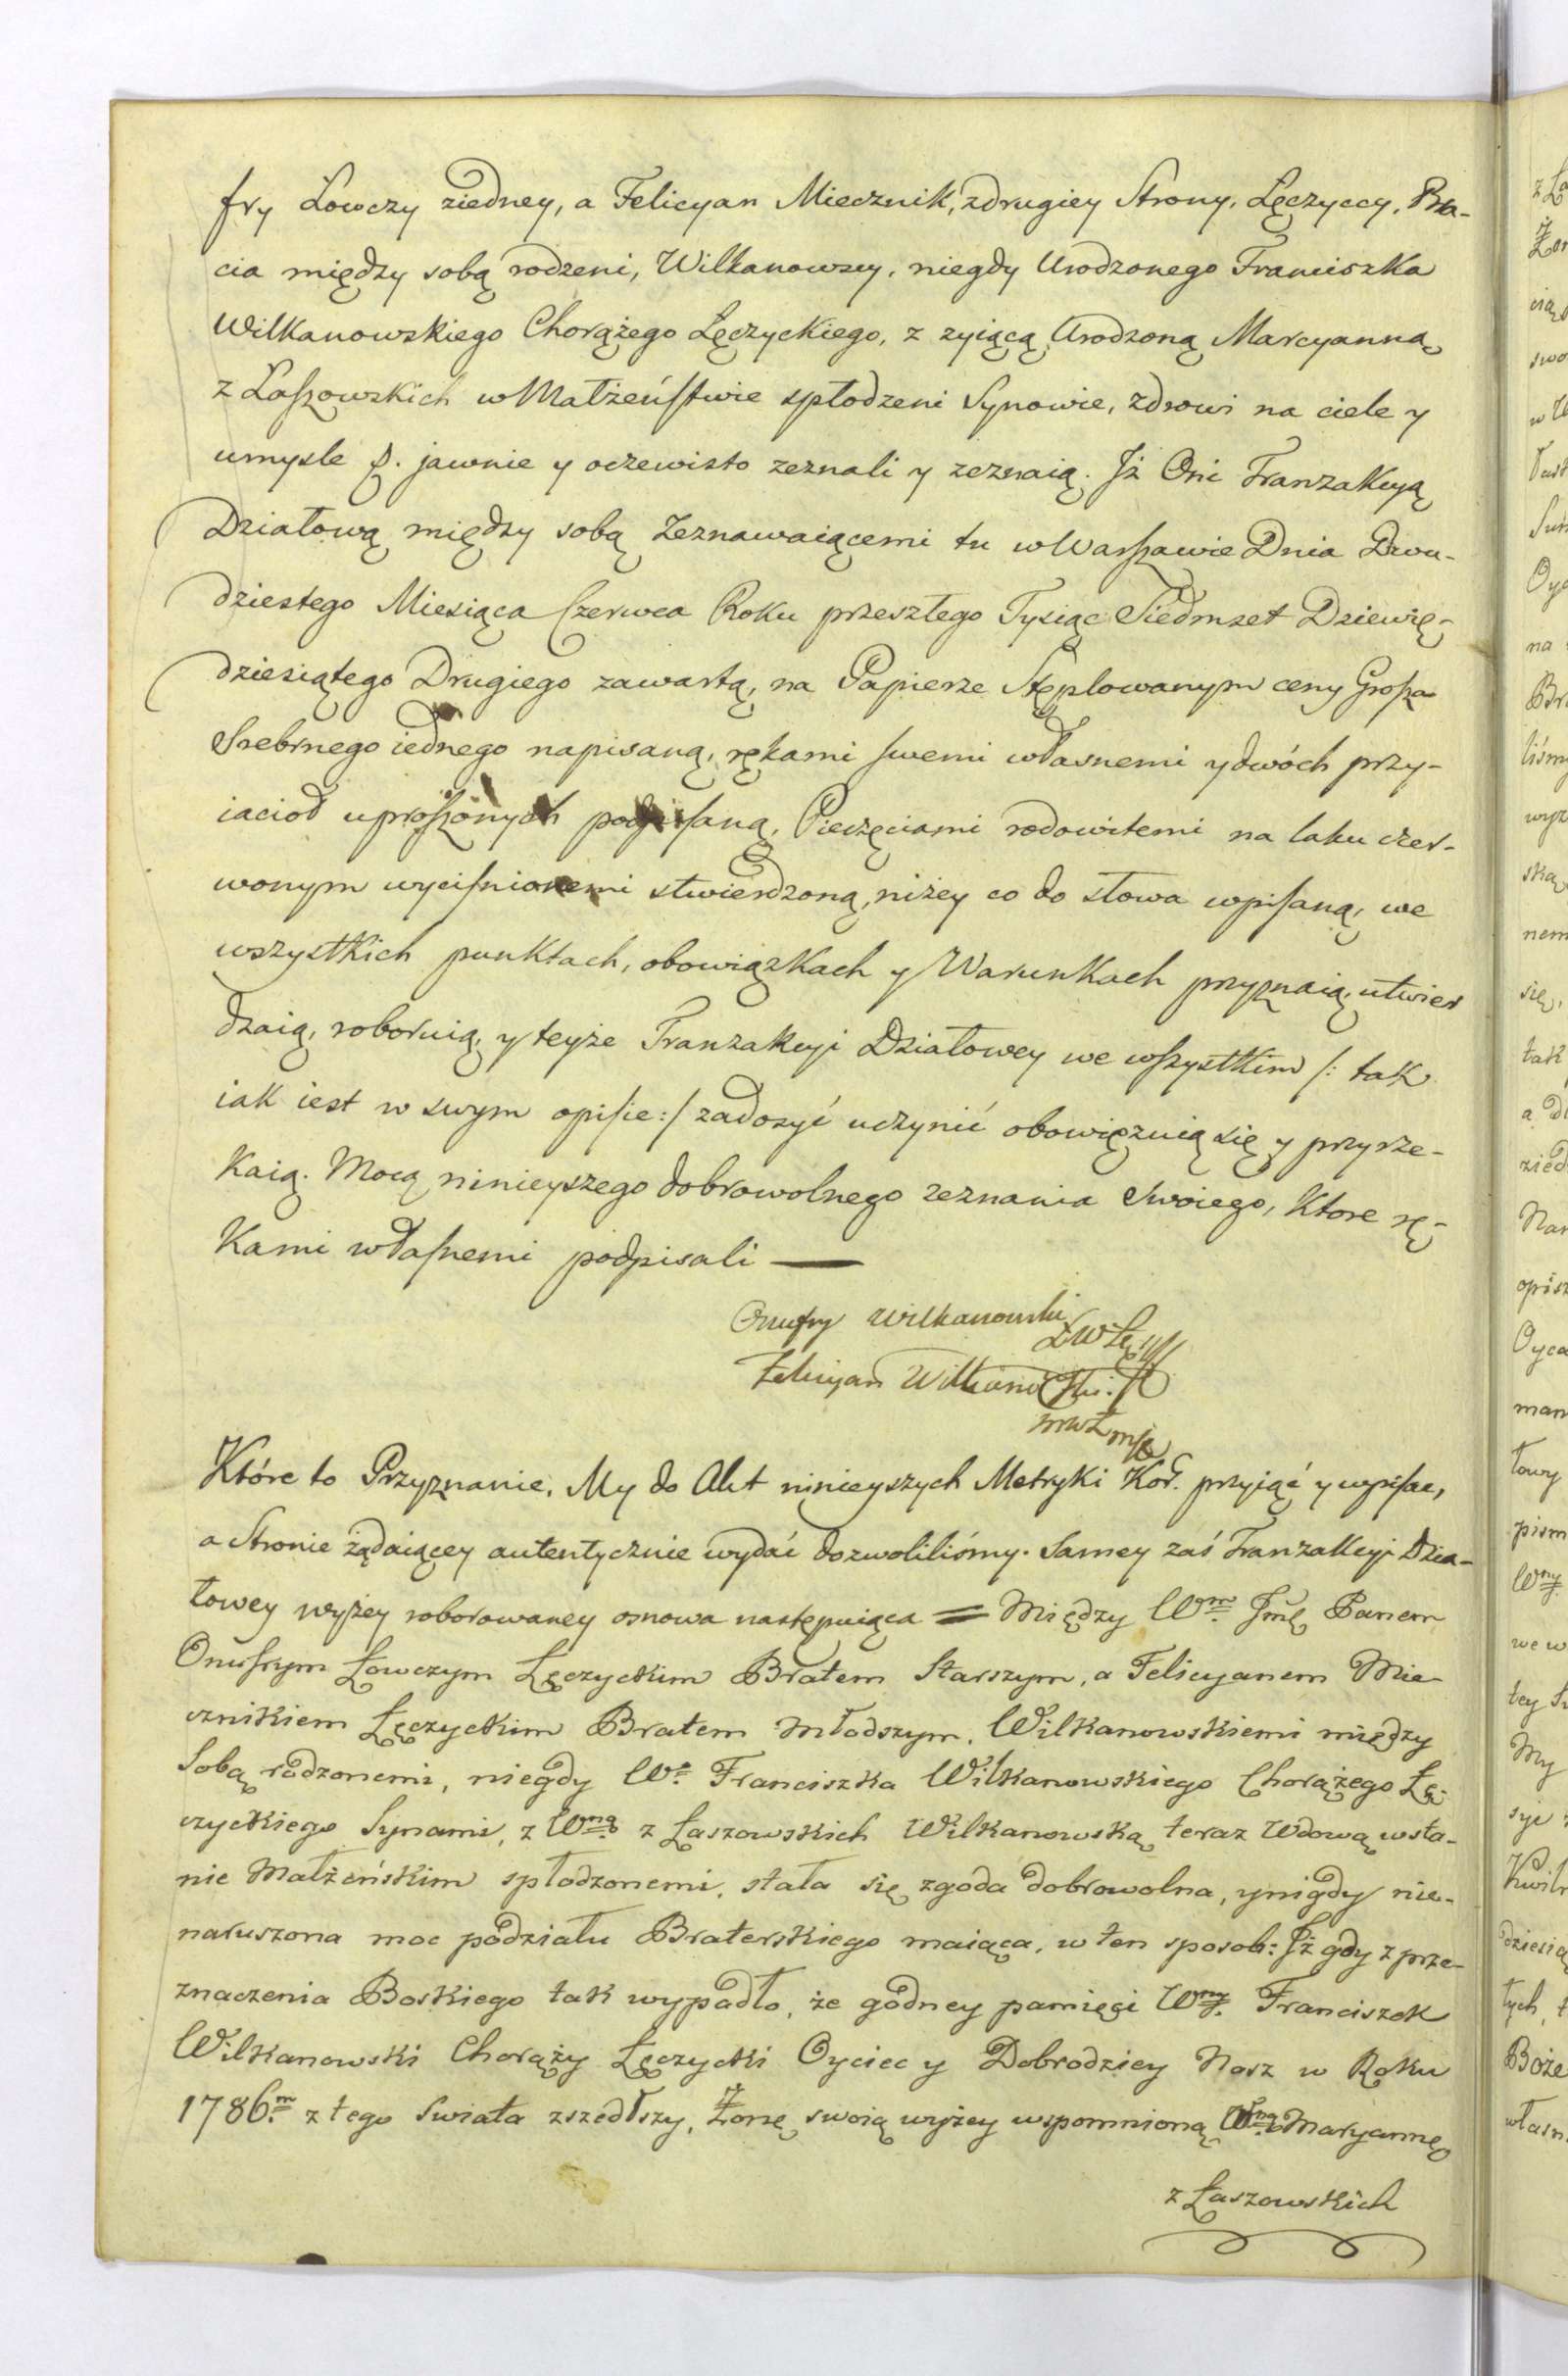 fry Łowczy ziedney, a Felicyan Miecznik, zdrugiey Strony, Łęczyccy, Bra-
cia między sobą rodzeni, Wilkanowscy, niegdy Urodzonego Franciszka
Wilkanowskiego Chorążego Łęczyckiego, z zyiącą Urodzoną Marcyanną
z Łaszowskich w Małżeństwie spłodzeni Synowie, zdrowi na ciele y
umysle p. jawnie y oczewisto zeznali y zeznaią. Iż Oni Tranzakcyą
Działową między sobą Zeznawaiącemi tu w Warszawie Dnia Dwu-
dziestego Miesiąca Czerwca Roku przeszłego Tysiąc Siedmset Dziewię-
dziesiątego Drugiego zawartą, na Papierze Stęplowanym ceny Grosza
Srebrnego iednego napisaną, rękami swemi własnemi y dwóch przy-
iacioł uproszonych podpisaną, Pieczęciami rodowitemi na laku czer-
wonym wycisnionemi stwierdzoną, niżey co do słowa wpisaną, we
wszystkich punktach, obowiązkach y Warunkach przyznaią, utwier
dzaią, roboruią, y teyże Tranzakcyi Działowey we wszystkim /: tak
iak iest w swym opisie :/ zadosyć uczynić obowięzuią się y przyrze-
kaią. Mocą ninieyszego dobrowolnego zeznania Swoiego, ktore rę-
kami własnemi podpisali —
Onufry Wilkanowski
Ł W Łę
Felicyan Wilkanowski
mwŁ mp
Które to Przyznanie, My do Akt ninieyszych Metryki Kor. przyiąć y wpisać,
a Stronie żądaiącey autentycznie wydać dozwoliliśmy. Samey zaś Tranzakcyi Dzia-
łowey wyżey roborowaney osnowa następuiąca = Między Wm. Jmę Panem
Onufrym Łowczym Łęczyckim Bratem Starszym, a Felicyanem Mie-
cznikiem Łęczyckim Bratem Młodszym, Wilkanowskiemi między
Sobą rodzonemi, niegdy Wo. Franciszka Wilkanowskiego Chorążego Łę-
czyckiego Synami, z Wną z Łaszowskich Wilkanowską teraz Wdową w sta-
nie Małżeńskim spłodzonemi, stała się zgoda dobrowolna, y nigdy nie-
naruszona moc podziału Braterskiego maiąca, w ten sposob: Iż gdy z prze-
znaczenia Boskiego tak wypadło, że godney pamięci Wny. Franciszek
Wilkanowski Chorąży Łęczycki Oyciec y Dobrodziey Nasz w Roku
1786.m z tego Swiata zszedłszy, Żonę swoią wyżey wspomnioną Wną Maryannę
z Łaszowskich